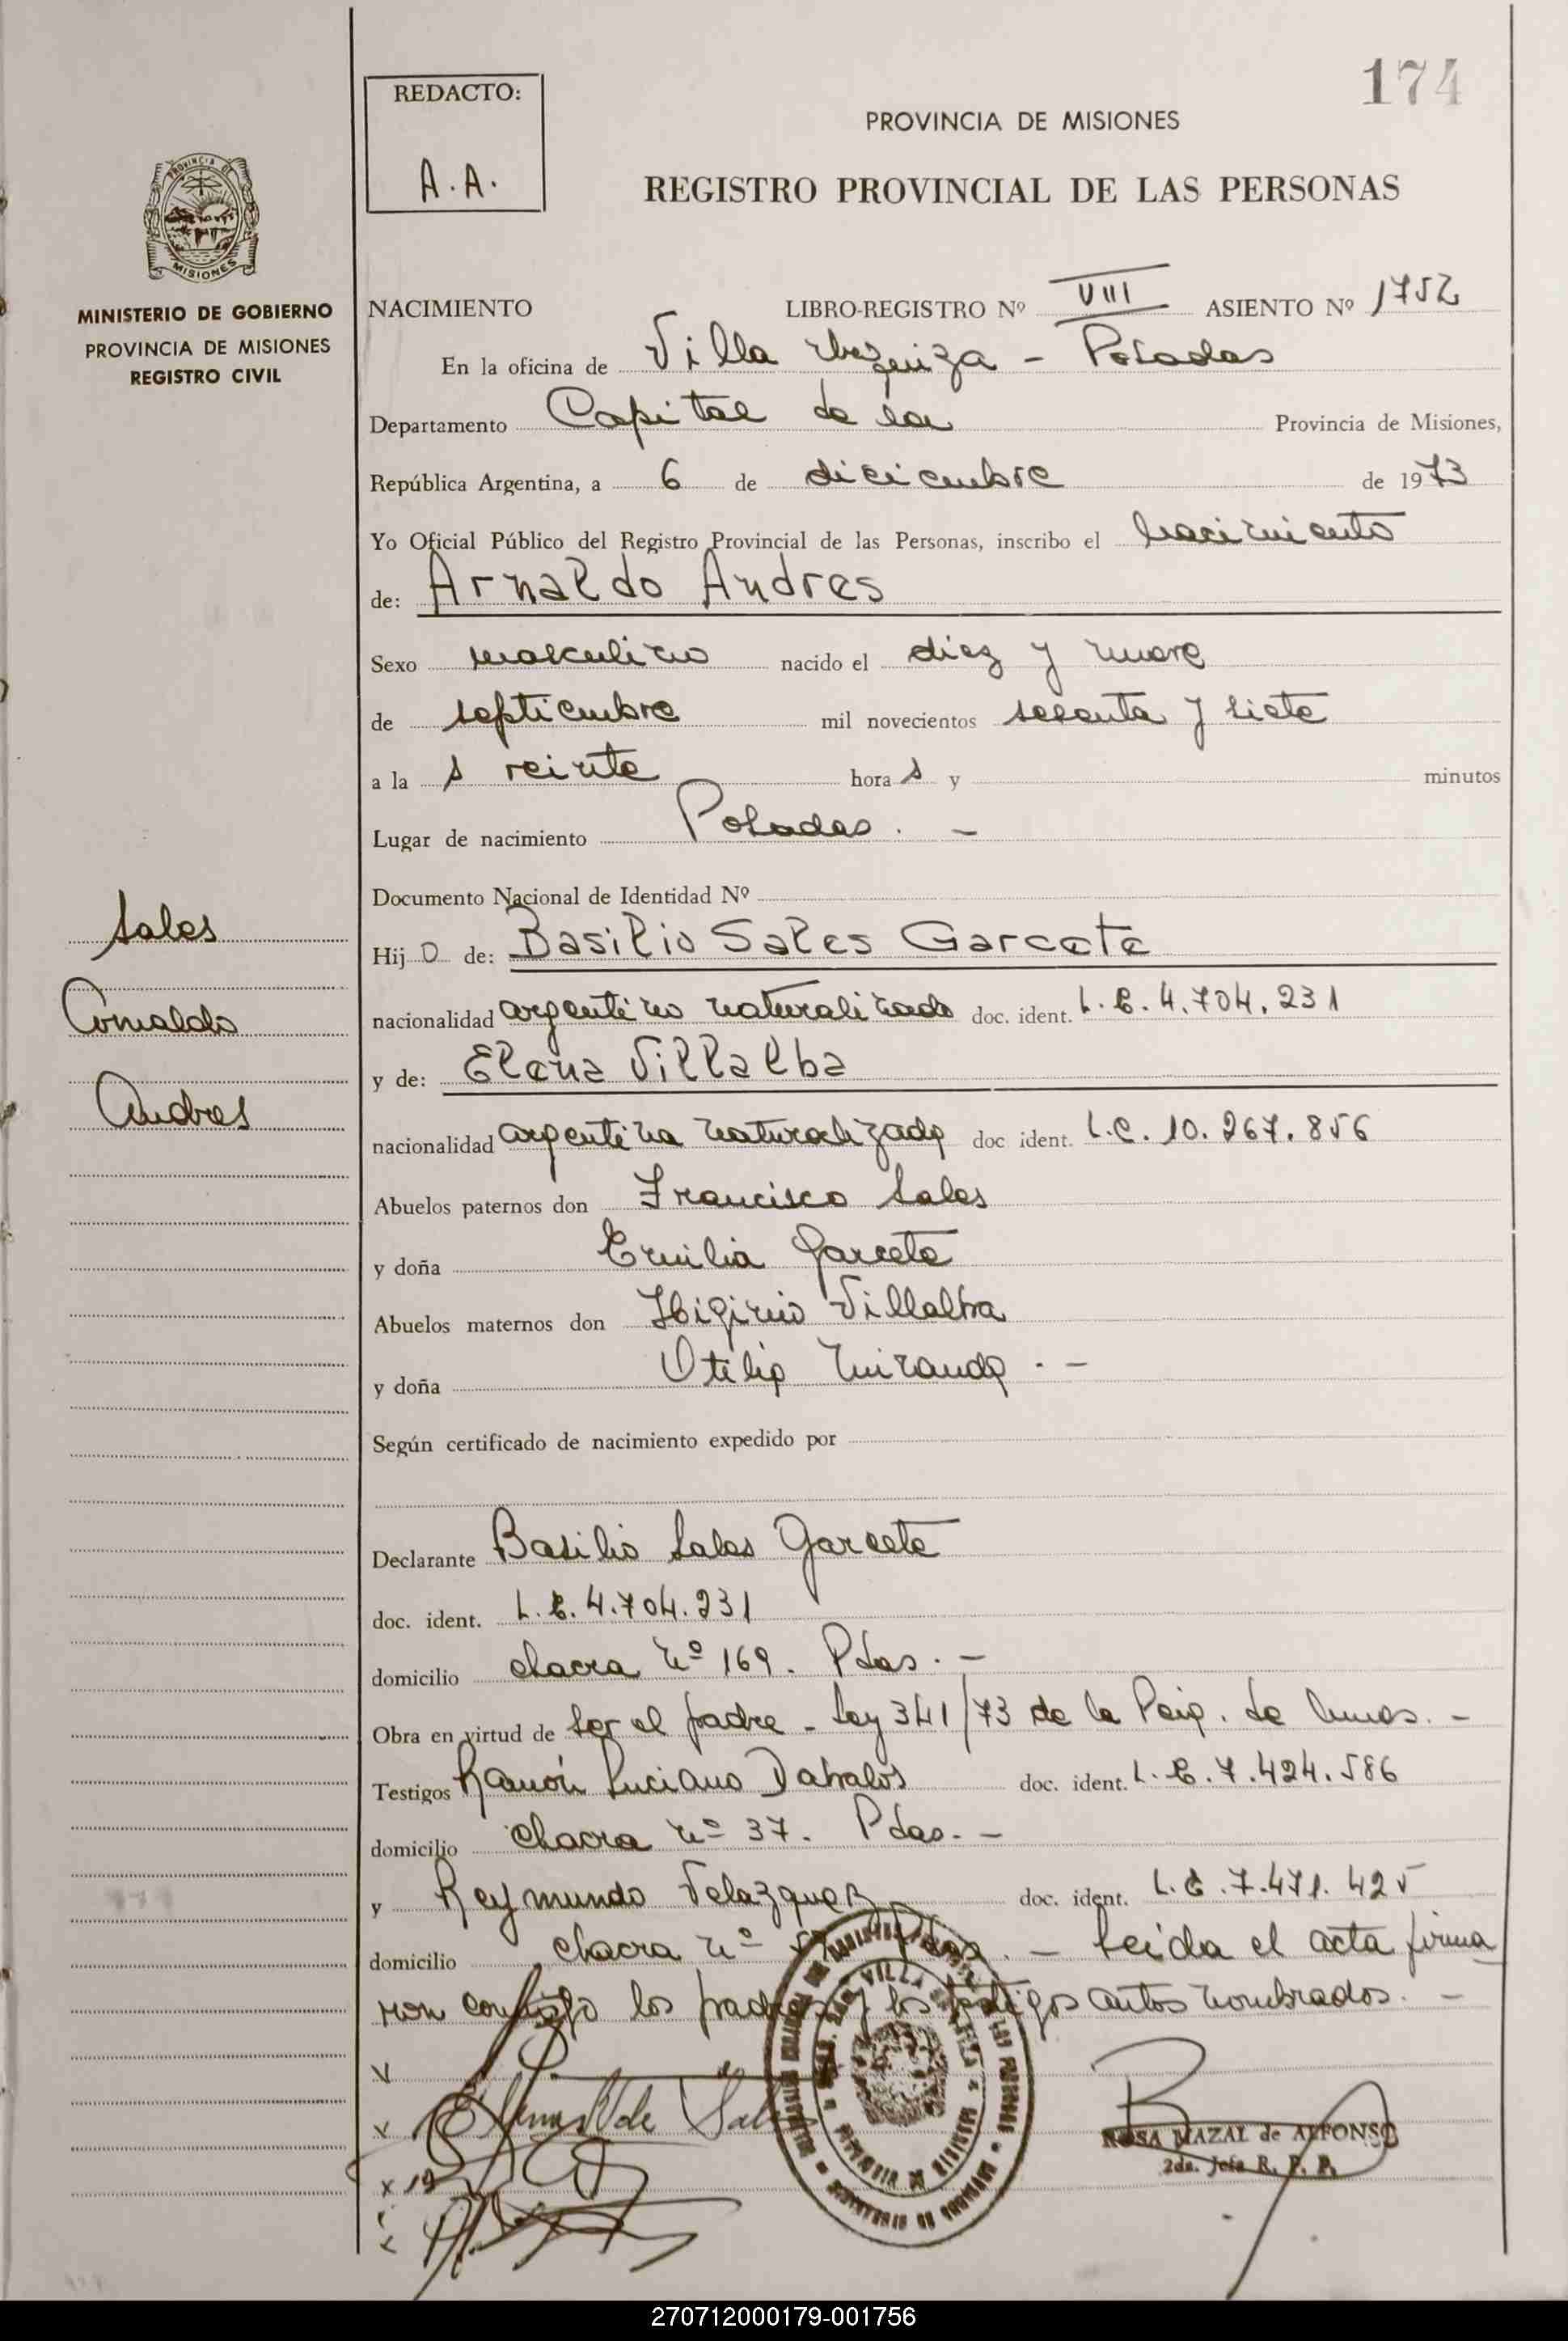 174
REDACTO:
A.A.
PROVINCIA DE MISIONES
REGISTRO PROVINCIAL DE LAS PERSONAS
PROVINCIA DE
MISIONES
MINISTERIO DE GOBIERNO
PROVINCIA DE MISIONES
REGISTRO CIVIL
NACIMIENTO LIBRO-REGISTRO Nº VIII ASIENTO Nº 1752
En la oficina de Villa Urquiza - Posadas
Departamento Capital de la Provincia de Misiones,
República Argentina, a 6 de diciembre de 1973
Yo Oficial Público del Registro Provincial de las Personas, inscribo el nacimiento
de: Arnaldo Andres
Sexo masculino nacido el diez y nueve
de septiembre mil novecientos sesenta y siete
a la s veinte hora s y minutos
Lugar de nacimiento Posadas. -
Documento Nacional de Identidad Nº
Sales
Hij o de: Basilio Sales Garcete
Arnaldo
nacionalidad argentino naturalizado doc. ident. L.E. 4.704.231
y de: Elena Villalba
Andres
nacionalidad argentina naturalizada doc ident. L.C. 10.267.856
Abuelos paternos don Francisco Sales
y doña Emilia Garcete
Abuelos maternos don Higinio Villalba
y doña Otilia Miranda. -
Según certificado de nacimiento expedido por
Declarante Basilio Sales Garcete
doc. ident. L.E. 4.704.231
domicilio chacra nº 169. Pdas. -
Obra en virtud de ser el padre - Ley 341/73 de la de -
Testigos Ramón Luciano Dabalos doc. ident. L.E. 7.424.586
domicilio chacra nº 37. Pdas. -
y Reymundo Velazquez doc. ident. L.E. 7.471.425
domicilio chacra nº Pdas. - Leida el acta firma
ron conmigo los padres y los testigos antes nombrados. -
Elena V de Sales
ROSA MAZAL de ALFONSO
2da. Jefa R. P. P.
270712000179-001756